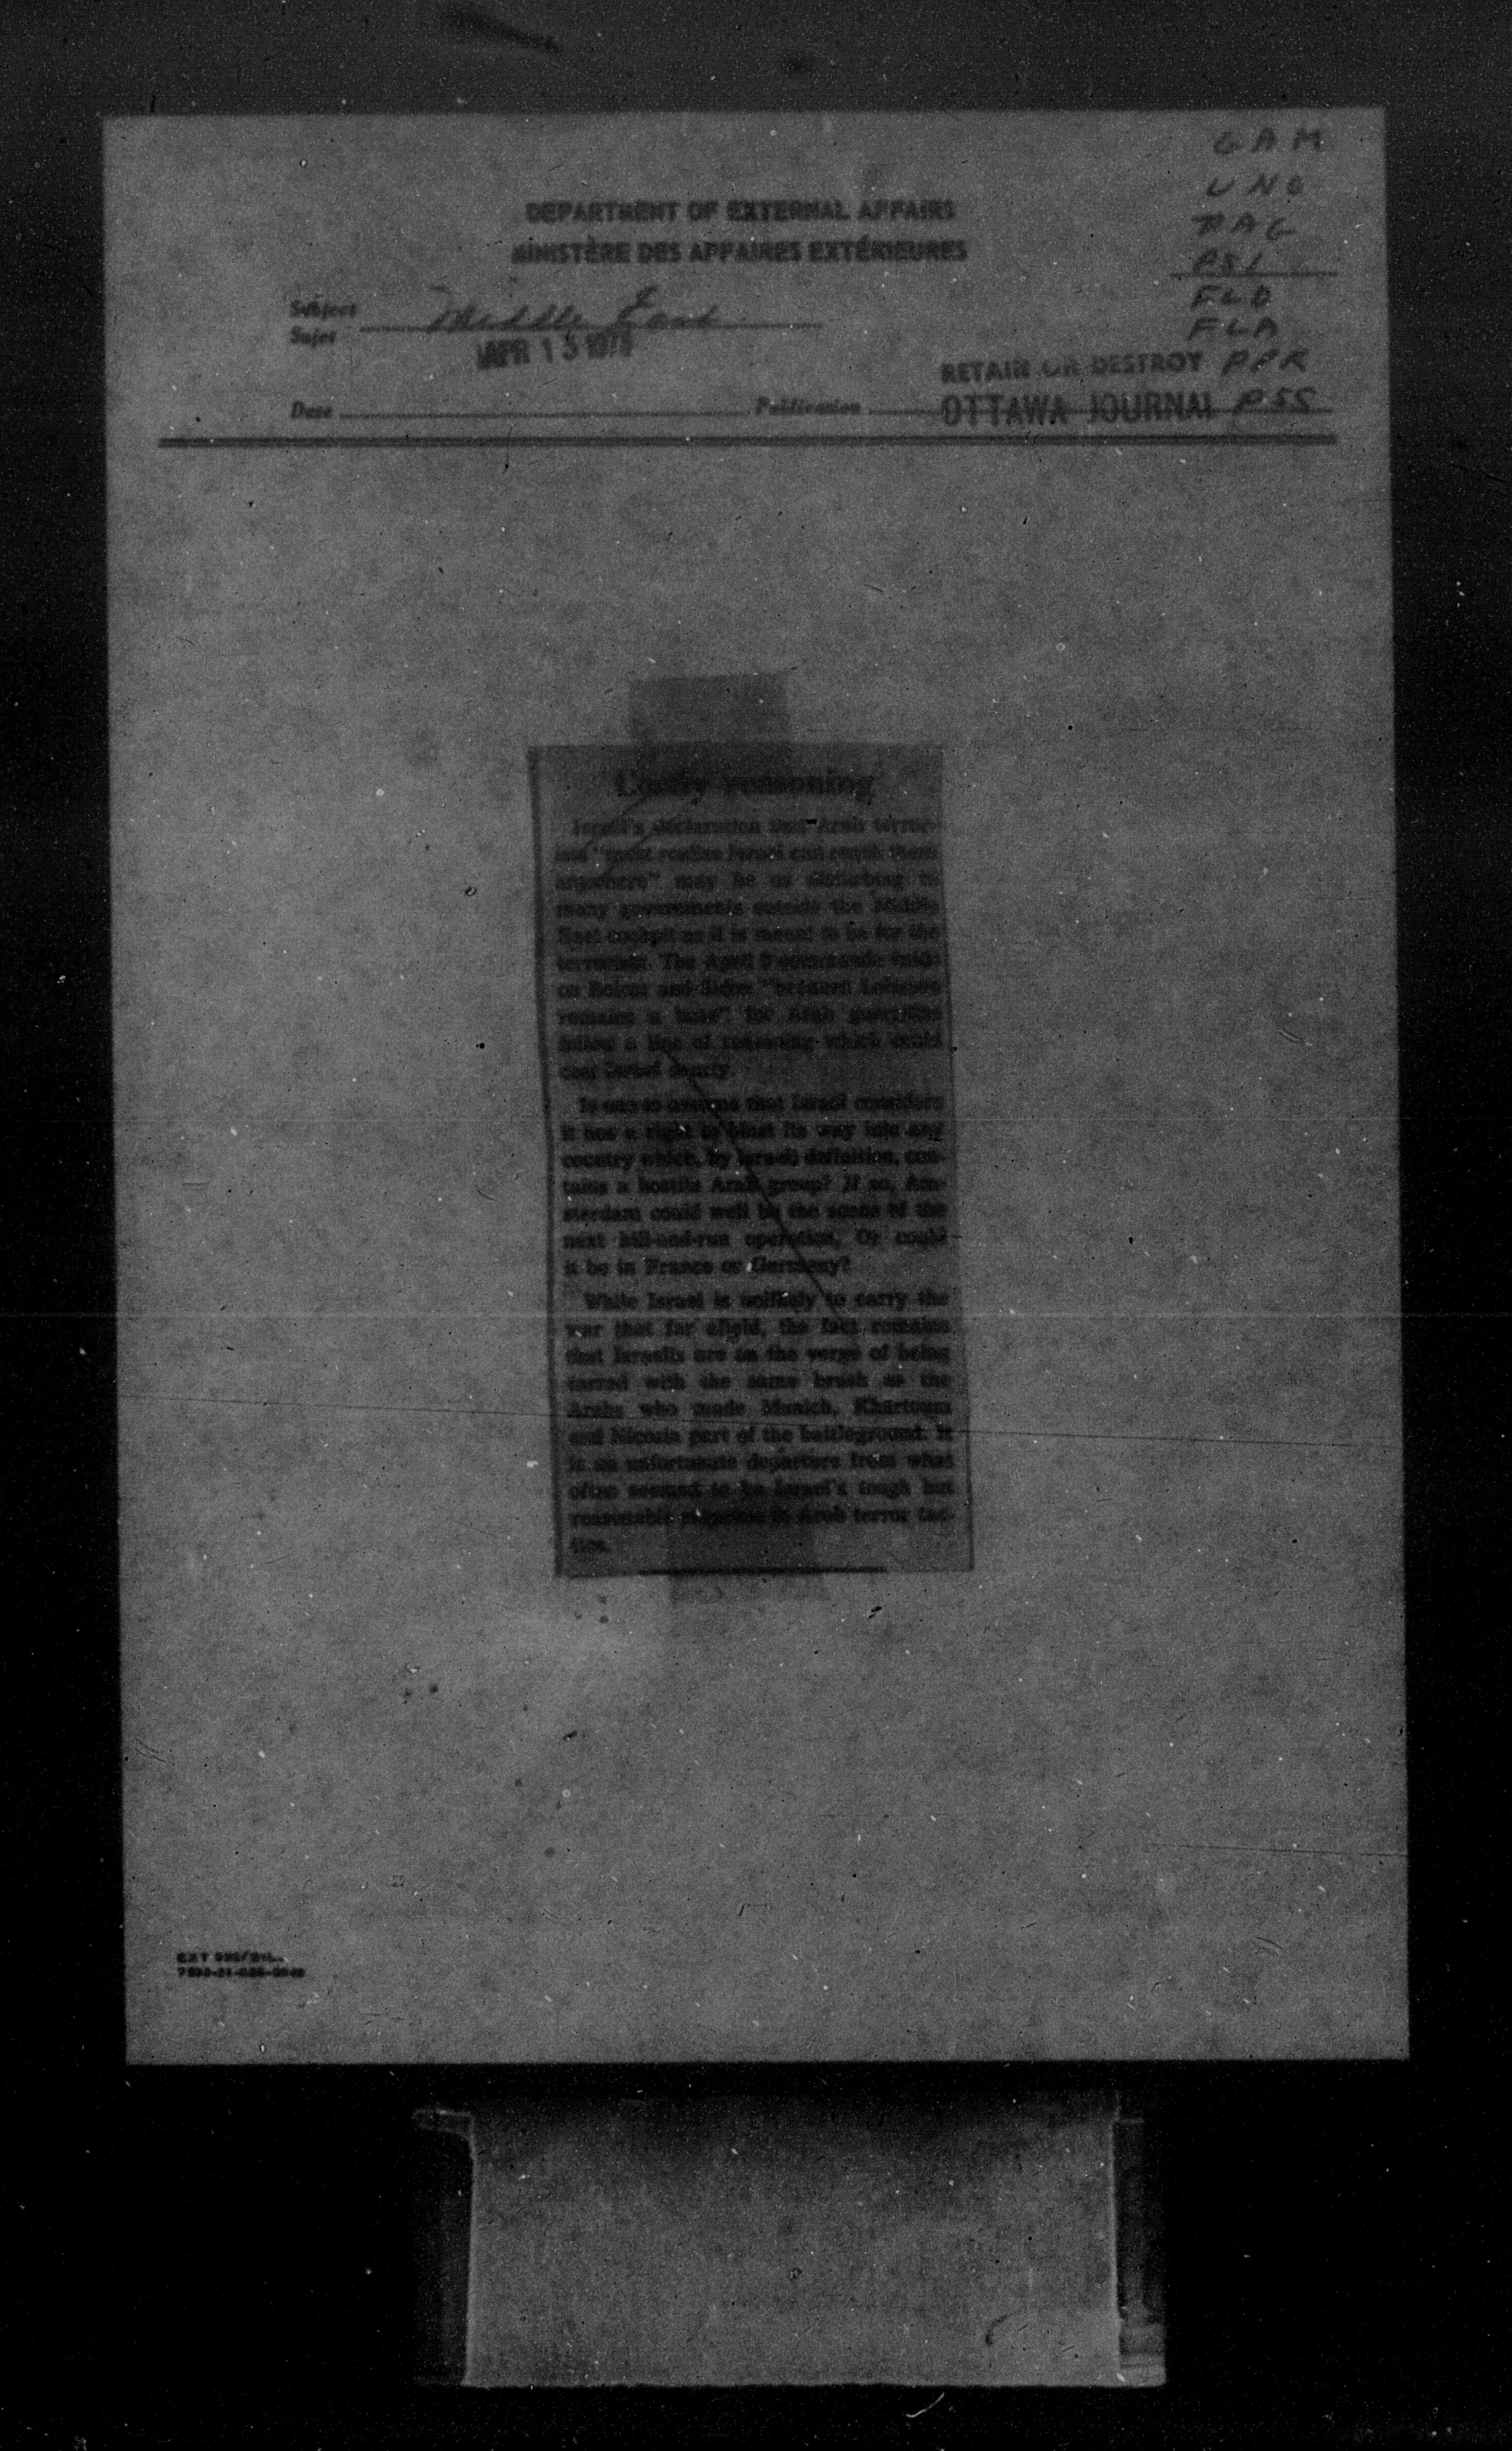 GAM
UNO
PAG
PSI
FLD
FLA
PPR
PSS
DEPARTMENT OF EXTERNAL AFFAIRS
MINISTÈRE DES AFFAIRES EXTÉRIEURES
Subject
Sujet
Middle East
APR 13 197
RETAIN OR DESTROY
Date
Publication
OTTAWA JOURNAL
Costly reasoning
Israel's declaration that Arab terror-
ists "must realize Israel can reach them
anywhere" may be as disturbing to
many governments outside the Middle
East cockpit as it is meant to be for the
terrorists. The April commando raids
on Beirut and Sidon "because Lebanon
remains a base" for Arab guerrillas
follow a line of reasoning which could
cost Israel dearly.
Is one to assume that Israel considers
it has a right to blast its way into any
country which, by Israeli definition, con-
tains a hostile Arab group? If so, Am-
sterdam could well be the scene of the
next hit-and-run operation. Or could
it be in France or Germany?
While Israel is unlikely to carry the
war that far afield, the fact remains
that Israelis are on the verge of being
tarred with the same brush as the
Arabs who made Munich, Khartoum
and Nicosia part of the battleground. It
is an unfortunate departure from what
often seemed to be Israel's tough but
reasonable response to Arab terror tac-
tics.
EXT